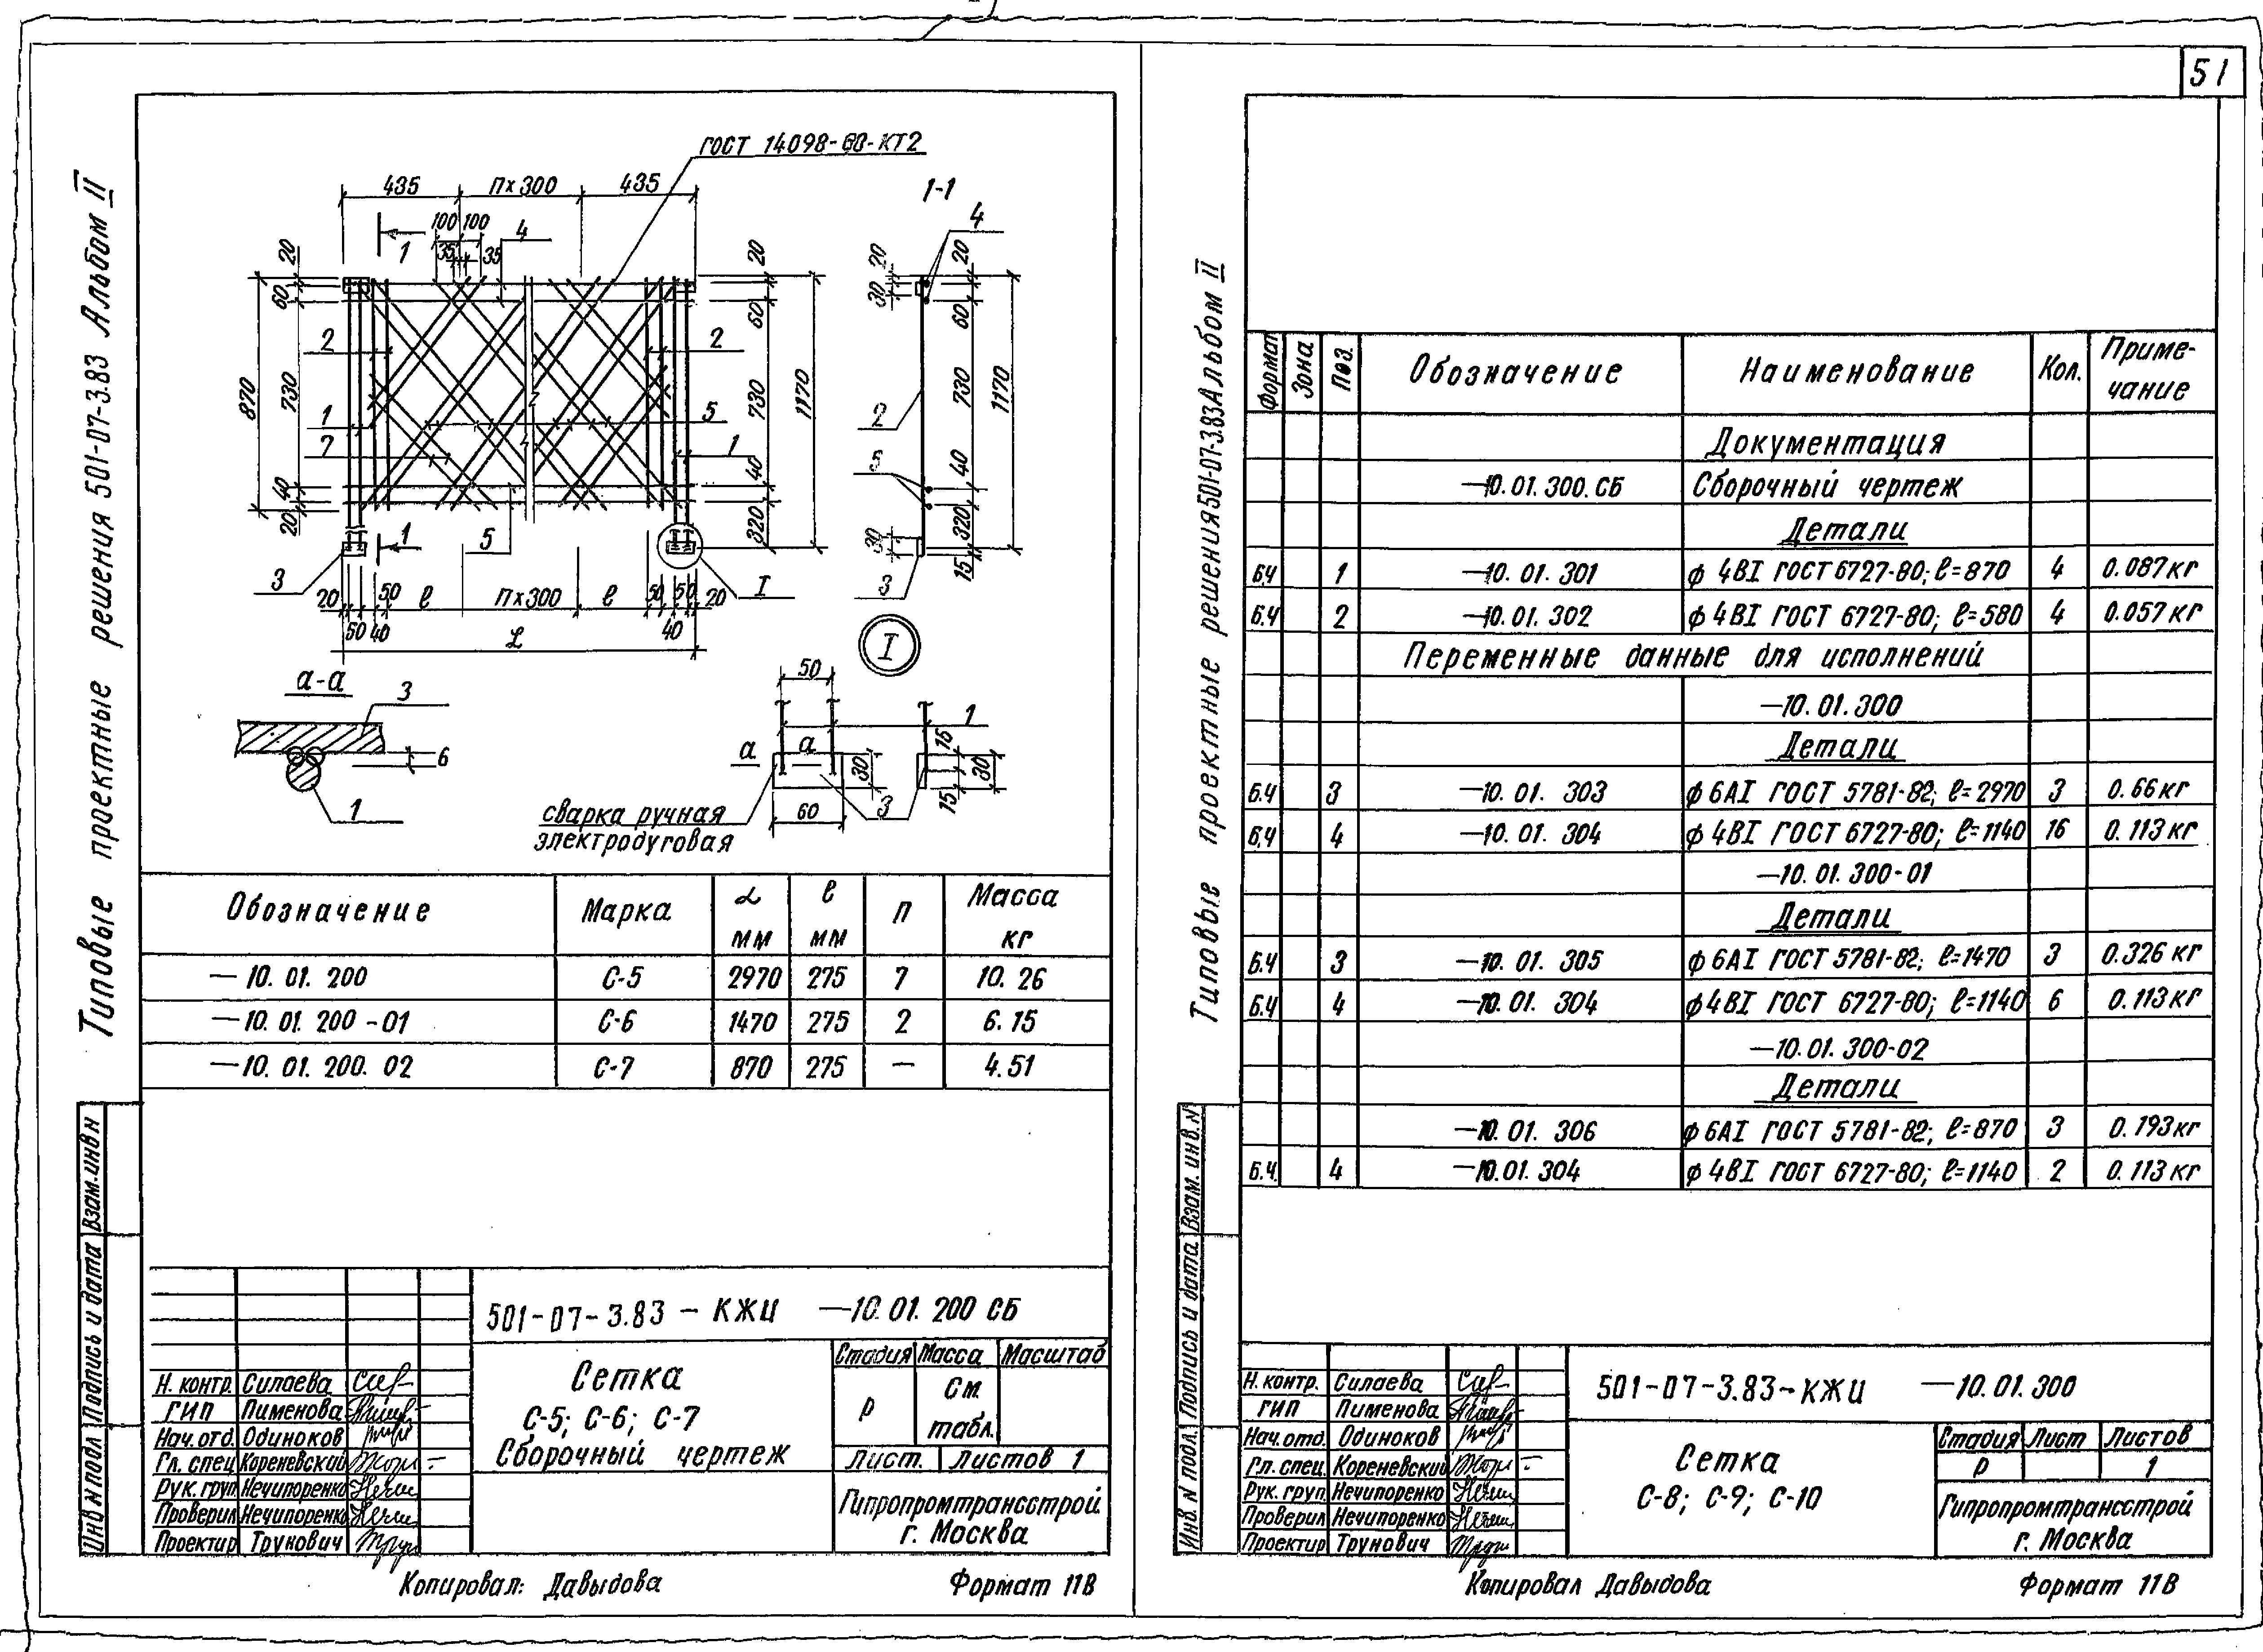 51
Типовые проектные решения 501-07-3.83 Альбом II
ГОСТ 14098-68-КТ2
435 п×300 435
1-1
100 100
4
4
35 35
1
20 20 20 20
60 60 30 60
2 2
870 730 730 1170 730 1170
1 5 2
7 1 5
40 40 40
20 320 320
1 5 30
3 I 3 15
20 50 ℓ п×300 ℓ 50 50 20
50 40 40
L
I
а-а
3
6
1
50
1
а а
15
30 30
15
3
60
сварка ручная
электродуговая
Обозначение Марка L мм ℓ мм п Масса кг
—10. 01. 200 С-5 2970 275 7 10. 26
—10. 01. 200 -01 С-6 1470 275 2 6. 15
—10. 01. 200. 02 С-7 870 275 — 4.51
Инв N подл Подпись и дата Взам.инв N
501-07-3.83 - КЖИ —10. 01. 200 СБ
Сетка
С-5; С-6; С-7
Сборочный чертеж
Стадия Масса Масштаб
Р См. табл.
Лист. Листов 1
Гипропромтрансстрой
г. Москва
Н. контр. Силаева
ГИП Пименова
Нач. отд. Одиноков
Гл. спец Кореневский
Рук. груп Нечипоренко
Проверил Нечипоренко
Проектир Трунович
Копировал: Давыдова Формат 11В
Типовые проектные решения 501-07-3.83 Альбом II
Формат Зона Поз. Обозначение Наименование Кол. Приме-
чание
Документация
—10. 01. 300. СБ Сборочный чертеж
Детали
Б.Ч 1 —10. 01. 301 ф 4ВI ГОСТ 6727-80; ℓ=870 4 0.087кг
Б.Ч 2 —10. 01. 302 ф 4ВI ГОСТ 6727-80; ℓ=580 4 0.057кг
Переменные данные для исполнений
—10. 01. 300
Детали
Б.Ч 3 —10. 01. 303 ф 6АI ГОСТ 5781-82; ℓ=2970 3 0.66кг
Б.Ч 4 —10. 01. 304 ф 4ВI ГОСТ 6727-80; ℓ=1140 16 0.113кг
—10. 01. 300-01
Детали
Б.Ч 3 —10. 01. 305 ф 6АI ГОСТ 5781-82; ℓ=1470 3 0.326 кг
Б.Ч 4 —10. 01. 304 ф 4ВI ГОСТ 6727-80; ℓ=1140 6 0.113кг
—10. 01. 300-02
Детали
—10. 01. 306 ф 6АI ГОСТ 5781-82; ℓ=870 3 0.193кг
Б.Ч. 4 —10. 01. 304 ф 4ВI ГОСТ 6727-80; ℓ=1140 2 0.113 кг
Инв. N подл. Подпись и дата Взам. инв. N
501-07-3.83-КЖИ —10. 01. 300
Сетка
С-8; С-9; С-10
Стадия Лист Листов
Р 1
Гипропромтрансстрой
г. Москва
Н. контр. Силаева
ГИП Пименова
Нач. отд. Одиноков
Гл. спец. Кореневский
Рук. груп Нечипоренко
Проверил Нечипоренко
Проектир Трунович
Копировал Давыдова Формат 11В